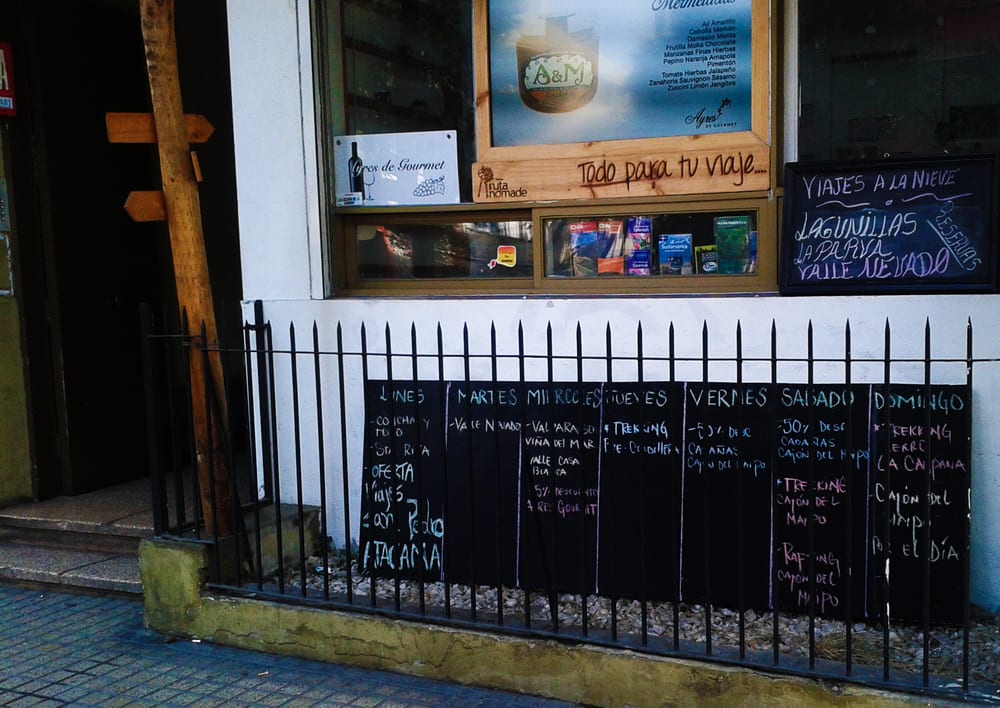 Mermeladas
Ají Amarillo
Cebolla Merkén
Damasco Menta
Frutilla Moka Chocolate
Manzanas Finas Hierbas
Pepino Naranja Amapola
Pimentón
Tomate Hierbas Jalapeño
Zanahoria Salvia Sésamo
Zuccini Limón Jengibre
A&M
Ayres
DE GOURMET
Ayres de Gourmet
Todo para tu viaje....
ruta
nomade
VIAJES A LA NIEVE
LAGUNILLAS
LA PARVA
VALLE NEVADO
RESERVAS
LUNES
OFERTA
VIAJES
SAN PEDRO
ATACAMA
MARTES
-VALLE NEVADO
MIERCOLES
-VALPARAISO
VIÑA DEL MAR
VALLE CASA
BLANCA
5% DESCUENTO
AYRES GOURMET
JUEVES
*TREKKING
PRE-CORDILLERA
VIERNES
-50% DESC
CABAÑAS
CAJON DEL MAIPO
SABADO
-50% DESC
CABAÑAS
CAJON DEL MAIPO
*TREKKING
CAJON DEL
MAIPO
-RAFTING
CAJON DEL
MAIPO
DOMINGO
*TREKKING
CERRO
LA CAMPANA
-CAJON DEL
MAIPO
POR EL DIA